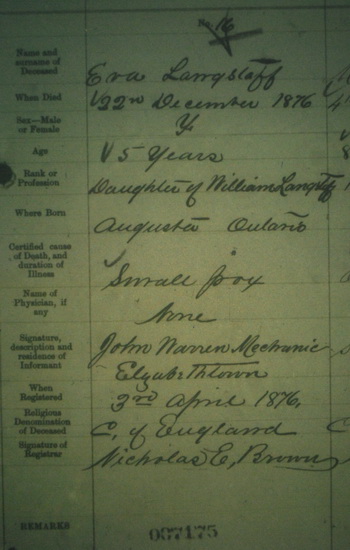 No. 16
Name and
surname of
Deceased
Eva Langstaff
When Died
22n December 1876
Sex—Male
or Female
Age
5 Years
Rank or
Profession
Daughter of William Langstaff
Where Born
Augusta Ontario
Certified cause
of Death, and
duration of
Illness
Small pox
Name of
Physician, if
any
None
Signature,
description and
residence of
Informant
John Warren Mechanic
Elizabethtown
When
Registered
3rd April 1876,
Religious
Denomination
of Deceased
C. of England
Signature of
Registrar
Nicholas E. Brown
REMARKS
007175